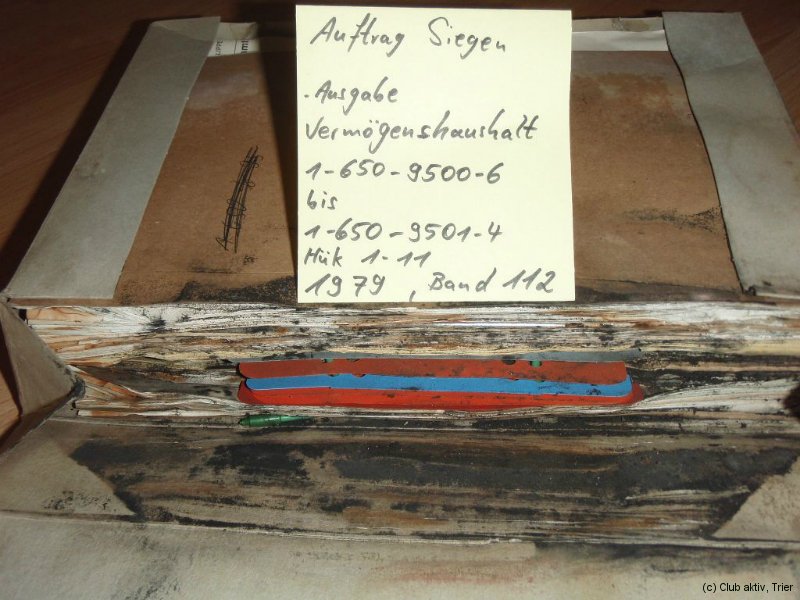 Auftrag Siegen
. Ausgabe
Vermögenshaushalt
1-650-9500-6
bis
1-650-9501-4
Hük 1-11
1979, Band 112
(c) Club aktiv, Trier